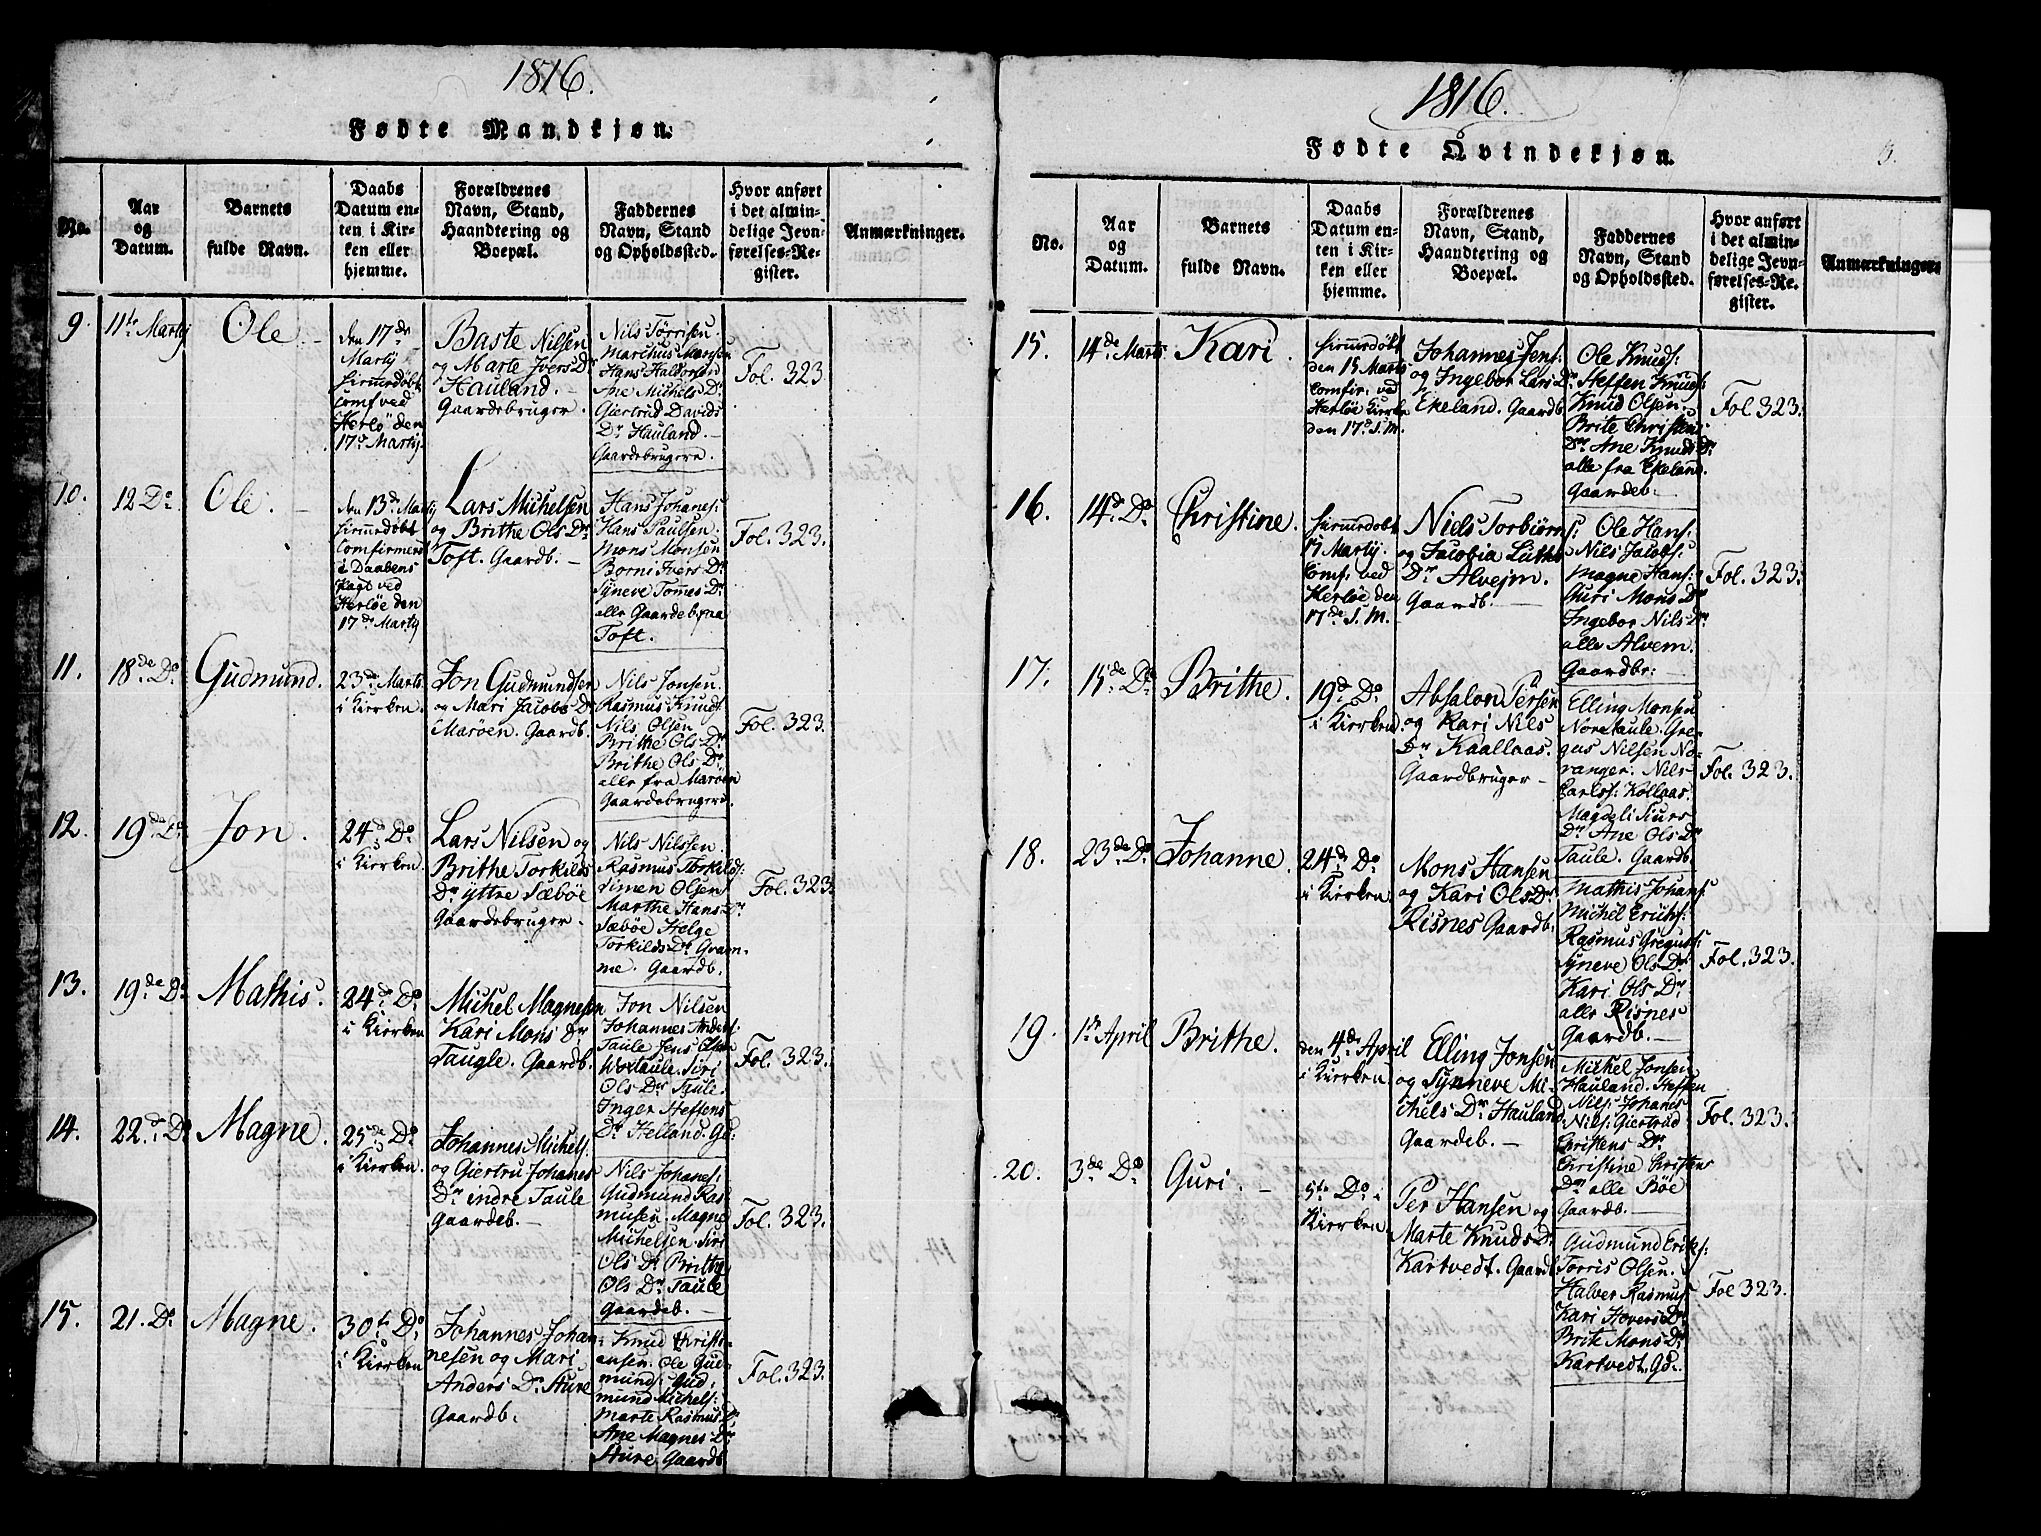 1816.
Fødte Mandkjøn.
No.
Aar
og
Datum.
Barnets
fulde Navn.
Daabs
Datum en-
ten i Kir-
ken eller
hjemme.
Forældrenes
Navn, Stand,
Haandtering og
Boepæl.
Faddernes
Navn, Stand
og Opholdssted.
Hvor anført
i det almin-
delige Jevn-
førelses-Re-
gister.
Anmærkninger.
9.
11te Martij
Ole
den 17de
Martij
hiemedøbt
Comf ved
Herlöe den
17d Martij.
Baste Nilsen
og Marte Ivers Dr
Hauland.
Gaardebruger.
Nils Törrisen.
Marchus Mansen
Hans Haldorsen
Ane Michels Dr
Giertrud Davids
Dr Hauland.
Gaardebrugere.
Fol. 323
10.
12 Do
Ole.
den 13de Martij
hiemedøbt
Comfirmert
i Daabens
Pagt ved
Herlöe den
17de Martij
Lars Michelsen
og Brithe Ols Dr
Toft. Gaardb.
Hans Johanes:
Hans Paulsen.
Mons Monsen
Borni Ivers Dr
Syneve Tomes Dr
alle Gaardeb. paa
Toft.
Fol. 323.
11.
18de Do
Gudmund.
23de Marts
i Kirken.
Jon Gudmundsen
og Mari Jacobs Dr
Maröen. Gaardb.
Nils Jonsen.
Rasmus Knuds:
Nils Olsen
Brithe Ols Dr
Brithe Ols Dr
alle fra Maröen
Gaardebrugere.
Fol. 323.
12.
19de Do
Jon.
24de Do
i Kirken.
Lars Nilsen og
Brithe Torkilds
Dr yttre Sæböe
Gaardebruger
Nils Nilsen
Rasmus Torkilds:
Simen Olsen
Marthe Hans Dr
Sæböe Helge
Torkilds Dr Gram-
me. Gaardb.
Fol. 323
13.
19de Do
Mathis.
24de Do
i Kirken
Michel Magnesen
Kari Mons Dr
Taugle. Gaardb.
Jon Nilsen
Johannes Anders:
Taule Jens Olsen
Taule. Siri
Ols Dr Taule
Inger Steffens
Dr Helland. Gd:
Fol. 323.
14.
22de Do
Magne.
25de Do
i Kirken.
Johannes Michels:
og Giertru Johanes
Dr indre Taule
Gaardeb.
Nils Johanes:
Gudmund Ras
musen. Magne
Michelsen. Siri
Ols Dr Brithe
Ols Dr Taule
Gaardeb.
Fol. 323.
15.
21. Do
Magne.
30te Do
i Kirken
Johannes Johan
nesen og Mari
Anders Dr Sture
Gaardb.
Knud Christi-
ansen. Ole Gud-
munds: Gud,
mund Michels:
Marte Rasmus Dr
Ane Magnes Dr
Sture. Gaardb
Fol. 323.
1816.
Fødte Qvindekjøn.
3.
No.
Aar
og
Datum.
Barnets
fulde Navn.
Daabs
Datum en-
ten i Kir-
ken eller
hjemme.
Forældrenes
Navn, Stand,
Haandtering og
Boepæl.
Faddernes
Navn, Stand
og Opholdssted.
Hvor anført
i det almin-
delige Jevn-
førelses-Re-
gister.
Anmærkninger.
15.
14de Marts
Kari.
hiemedøbt
den 15 Marts
Comfir. ved
Herlöe Kirke
den 17de S. M.
Johannes Jens:
og Ingebor Lars Dr
Ekeland. Gaardb.
Ole Knuds:
Steffen Knuds:
Knud Olsen
Brite Christens
Dr Ane Knuds Dr
alle fra Ekeland.
Gaardeb.
Fol 323.
16.
14de Do
Christine.
hiemedøbt
15 Martij.
Comf. ved
Herlöe den
17de S. M.
Niels Torbiörns:
og Jacobia Lüthe
Dr Alvejm.
Gaardb.
Ole Hans:
Nils Jacobs:
Magne Hans:
Guri Mons Dr
Ingebor Nils Dr
alle Alvem.
Gaardbr:
Fol. 323.
17.
15de Do
Brithe.
19de Do
i Kirken.
Absalon Persen
og Kari Nils
Dr Kaallaas.
Gaardbruger
Elling Monsen
Noretaule. Gre-
gus Nilsen No-
ranger. Nils
Carls: Kollaas.
Magdeli Siurs
Dr Ane Ols Dr
Taule. Gaardb.
Fol. 323.
18.
23de Do
Johanne.
24de Do
i Kirken.
Mons Hansen
og Kari Ols Dr
Risnes Gaardb.
Mathis Johans:
Michel Erichs:
Rasmus Gregus:
Syneve Ols Dr
Kari Ols Dr
alle Risnes
Gaardb.
Fol. 323.
19.
1te April
Brithe.
den 4de April
i Kirken
Elling Jonsen
og Synneve Mi-
chels Dr Hauland
Gaardeb.
Michel Jonsen
Hauland. Steffen
Nils: Johanes
Nils: Giertrud
Cristens Dr
Christine Cristens
Dr alle Böe
Gaardb.
Fol. 323.
20.
3de Do
Guri.
5te Do i
Kirken.
Per Hansen og
Marte Knuds Dr
Kartvedt. Gaardb
Gudmund Eriks:
Torris Olsen.
Halver Rasmus:
Kari Hovers Dr
Brite Mons Dr
Kartvedt. Gd.
Fol 323.